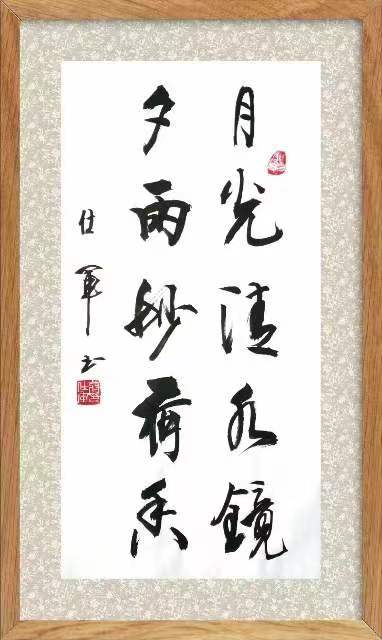 月光清水鏡
夕雨妙荷香
仕軍书